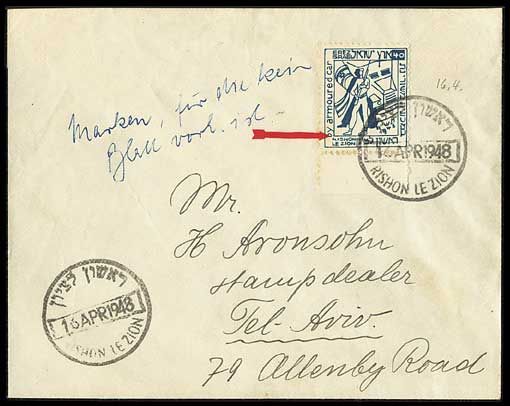 Marken, für die kein
Blatt vorh. ist
16.4.
40
by armoured car
RISHON
LE ZION
ראשון לציון
16 APR 1948
RISHON LE ZION
Mr.
H Aronsohn
stampdealer
Tel-Aviv.
79 Allenby Road
ראשון לציון
16 APR 1948
RISHON LE ZION